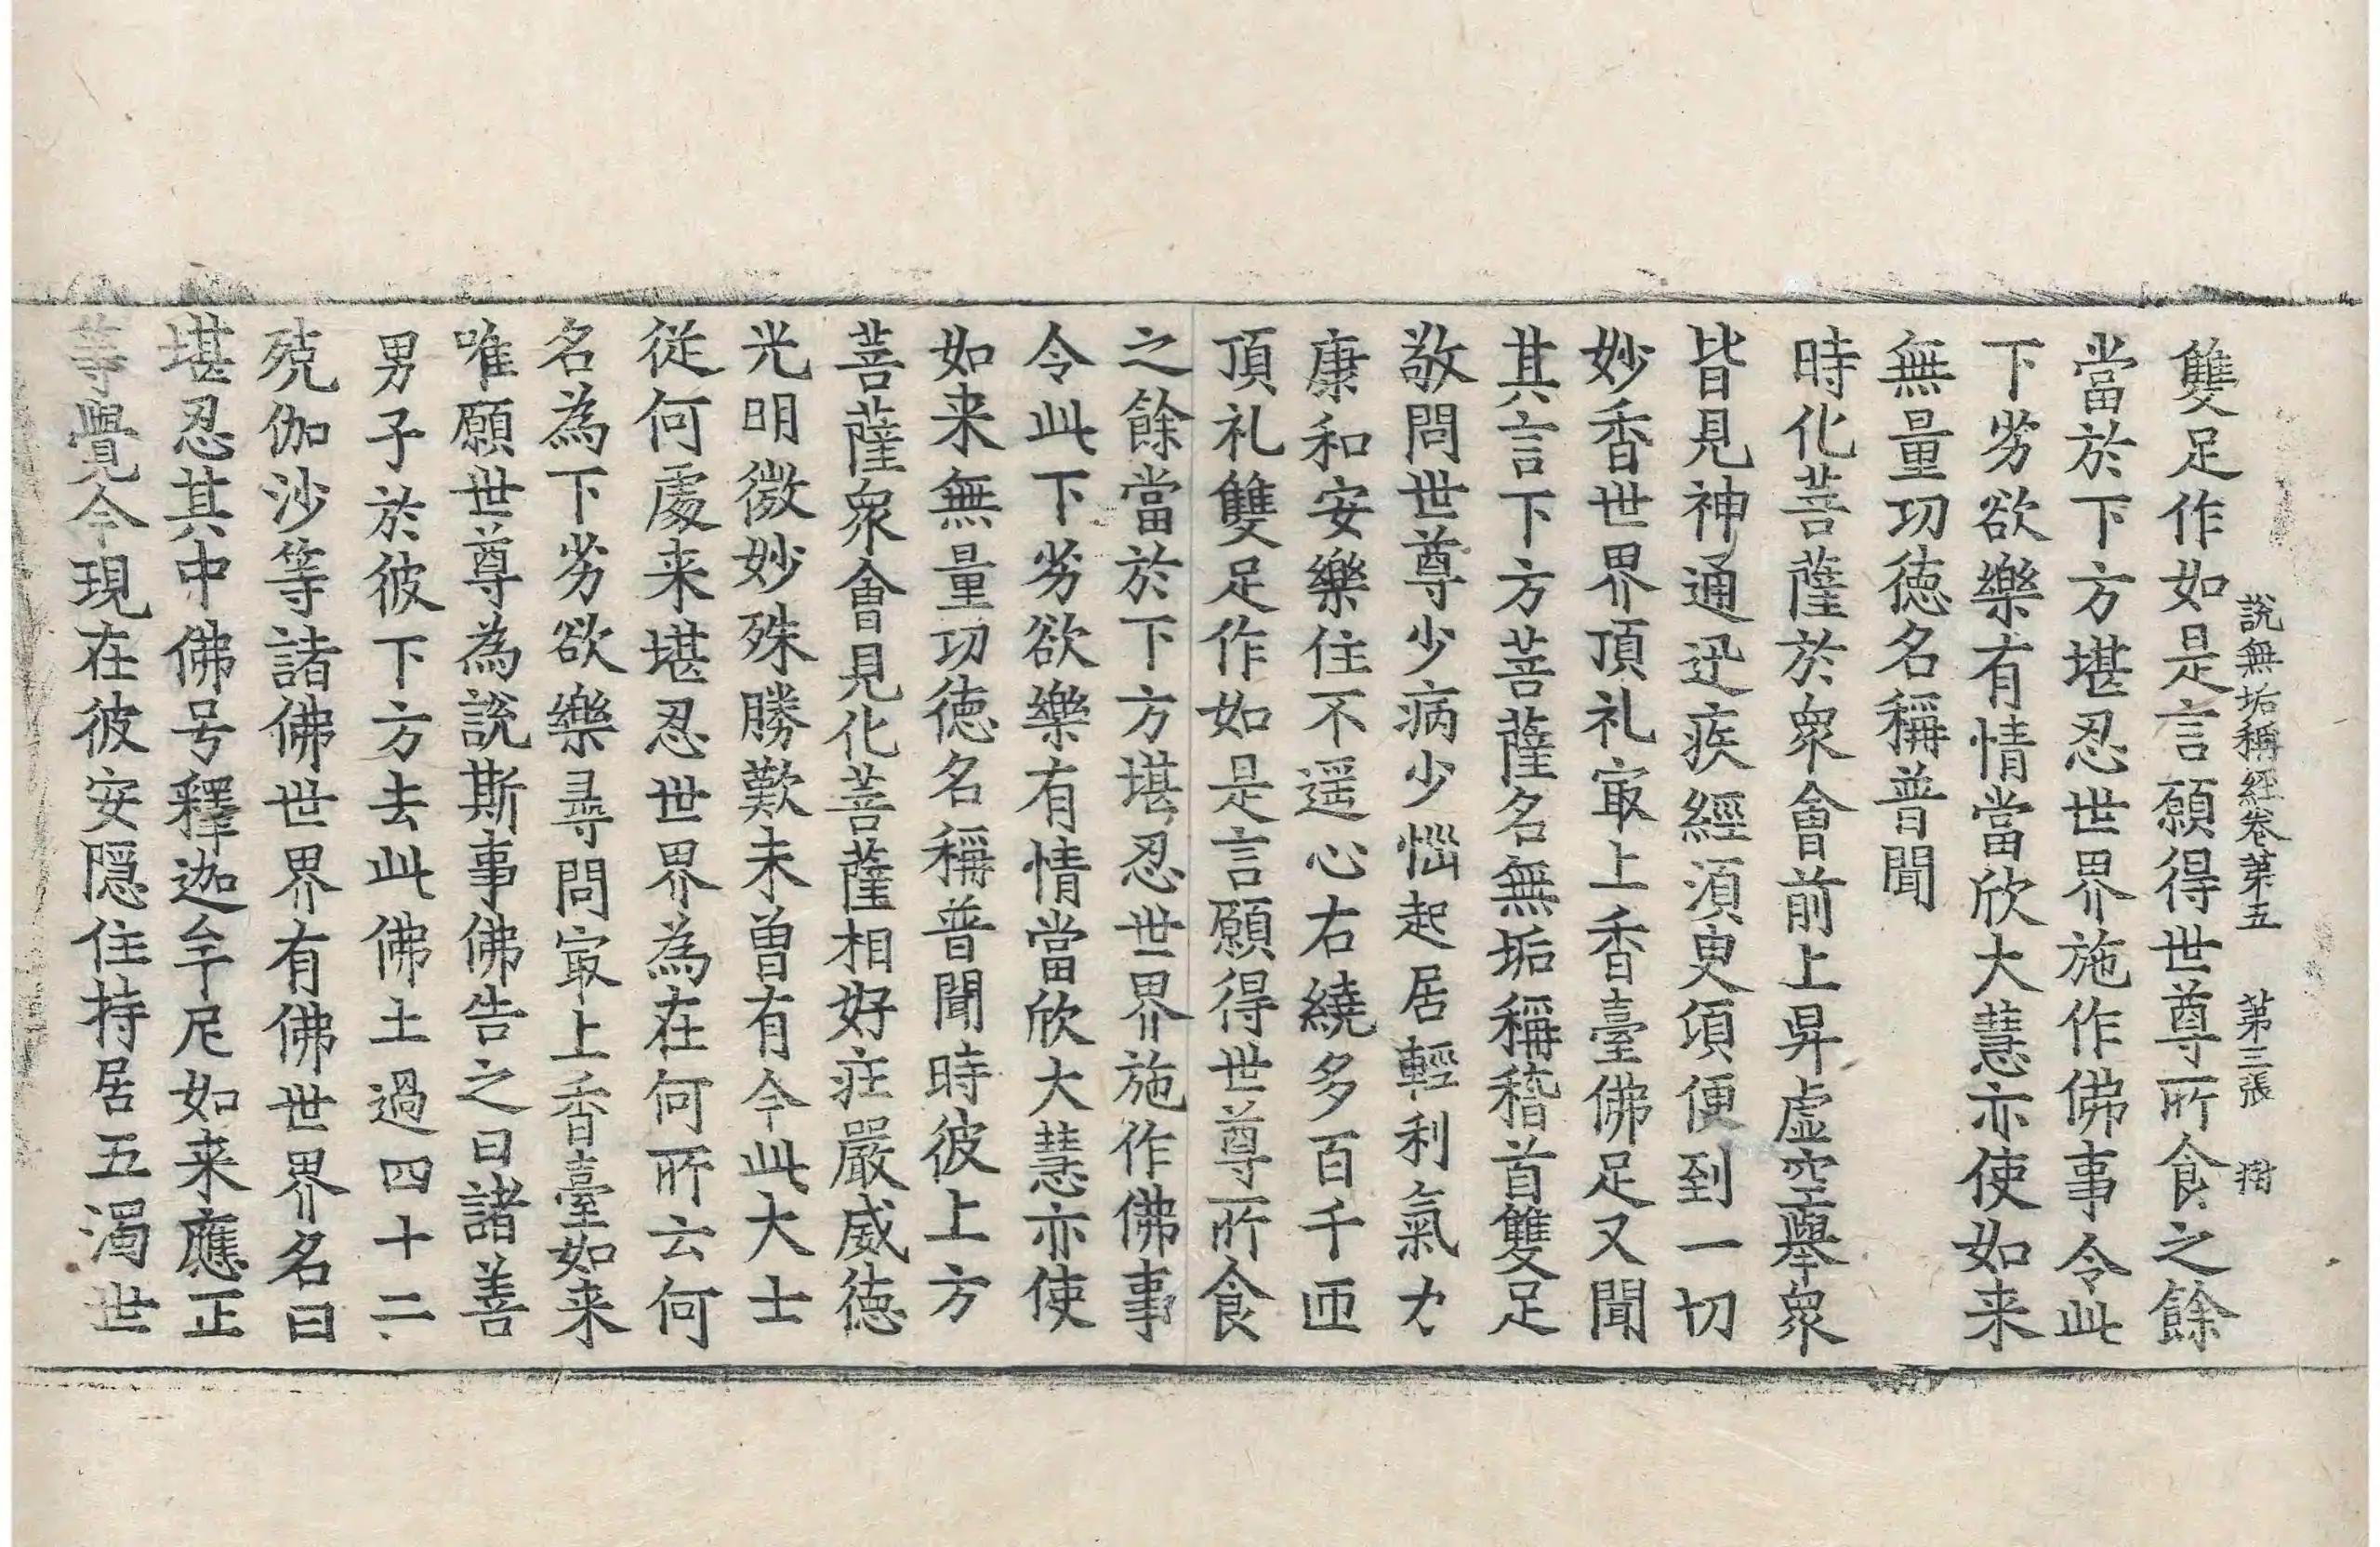 說無垢稱經卷第五　第三張　樹
雙足作如是言願得世尊所食之餘
當於下方堪忍世界施作佛事令此
下劣欲樂有情當欣大慧亦使如来
無量功德名稱普聞
時化菩薩於衆會前上昇虛空舉衆
皆見神通迅疾經須臾頃便到一切
妙香世界頂礼㝡上香臺佛足又聞
其言下方菩薩名無垢稱稽首雙足
敬問世尊少病少惱起居輕利氣力
康和安樂住不遥心右繞多百千匝
頂礼雙足作如是言願得世尊所食
之餘當於下方堪忍世界施作佛事
令此下劣欲樂有情當欣大慧亦使
如来無量功德名稱普聞時彼上方
菩薩衆會見化菩薩相好莊嚴威德
光明微妙殊勝歎未曾有今此大士
從何處来堪忍世界為在何所云何
名為下劣欲樂尋問㝡上香臺如来
唯願世尊為說斯事佛告之曰諸善
男子於彼下方去此佛土過四十二
殑伽沙等諸佛世界有佛世界名曰
堪忍其中佛号釋迦牟尼如来應正
等覺今現在彼安隱住持居五濁世